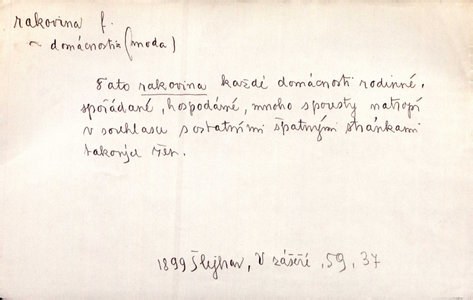 rakovina f.
~ domácnosti (moda)
Tato rakovina každé domácnosti rodinné,
spořádané, hospodárné, mnoho spousty natropí
v souhlasu s ostatními špatnými stránkami
takových žen.
1899 Šlejhar, V zášeří, 59, 37